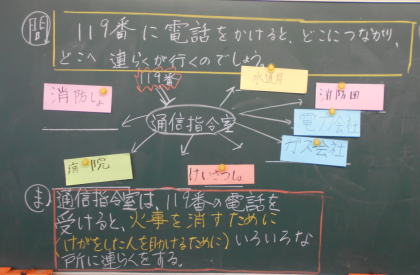 問
119番に電話をかけると、どこにつながり、
どこへ連らくが行くのでしょう。
119番
水道局
消防しょ
消防団
通信指令室
電力会社
ガス会社
病院
けいさつしょ
ま
通信指令室は、119番の電話を
受けると、火事を消すために
(けがをした人を助けるために)いろいろな
所に連らくをする。